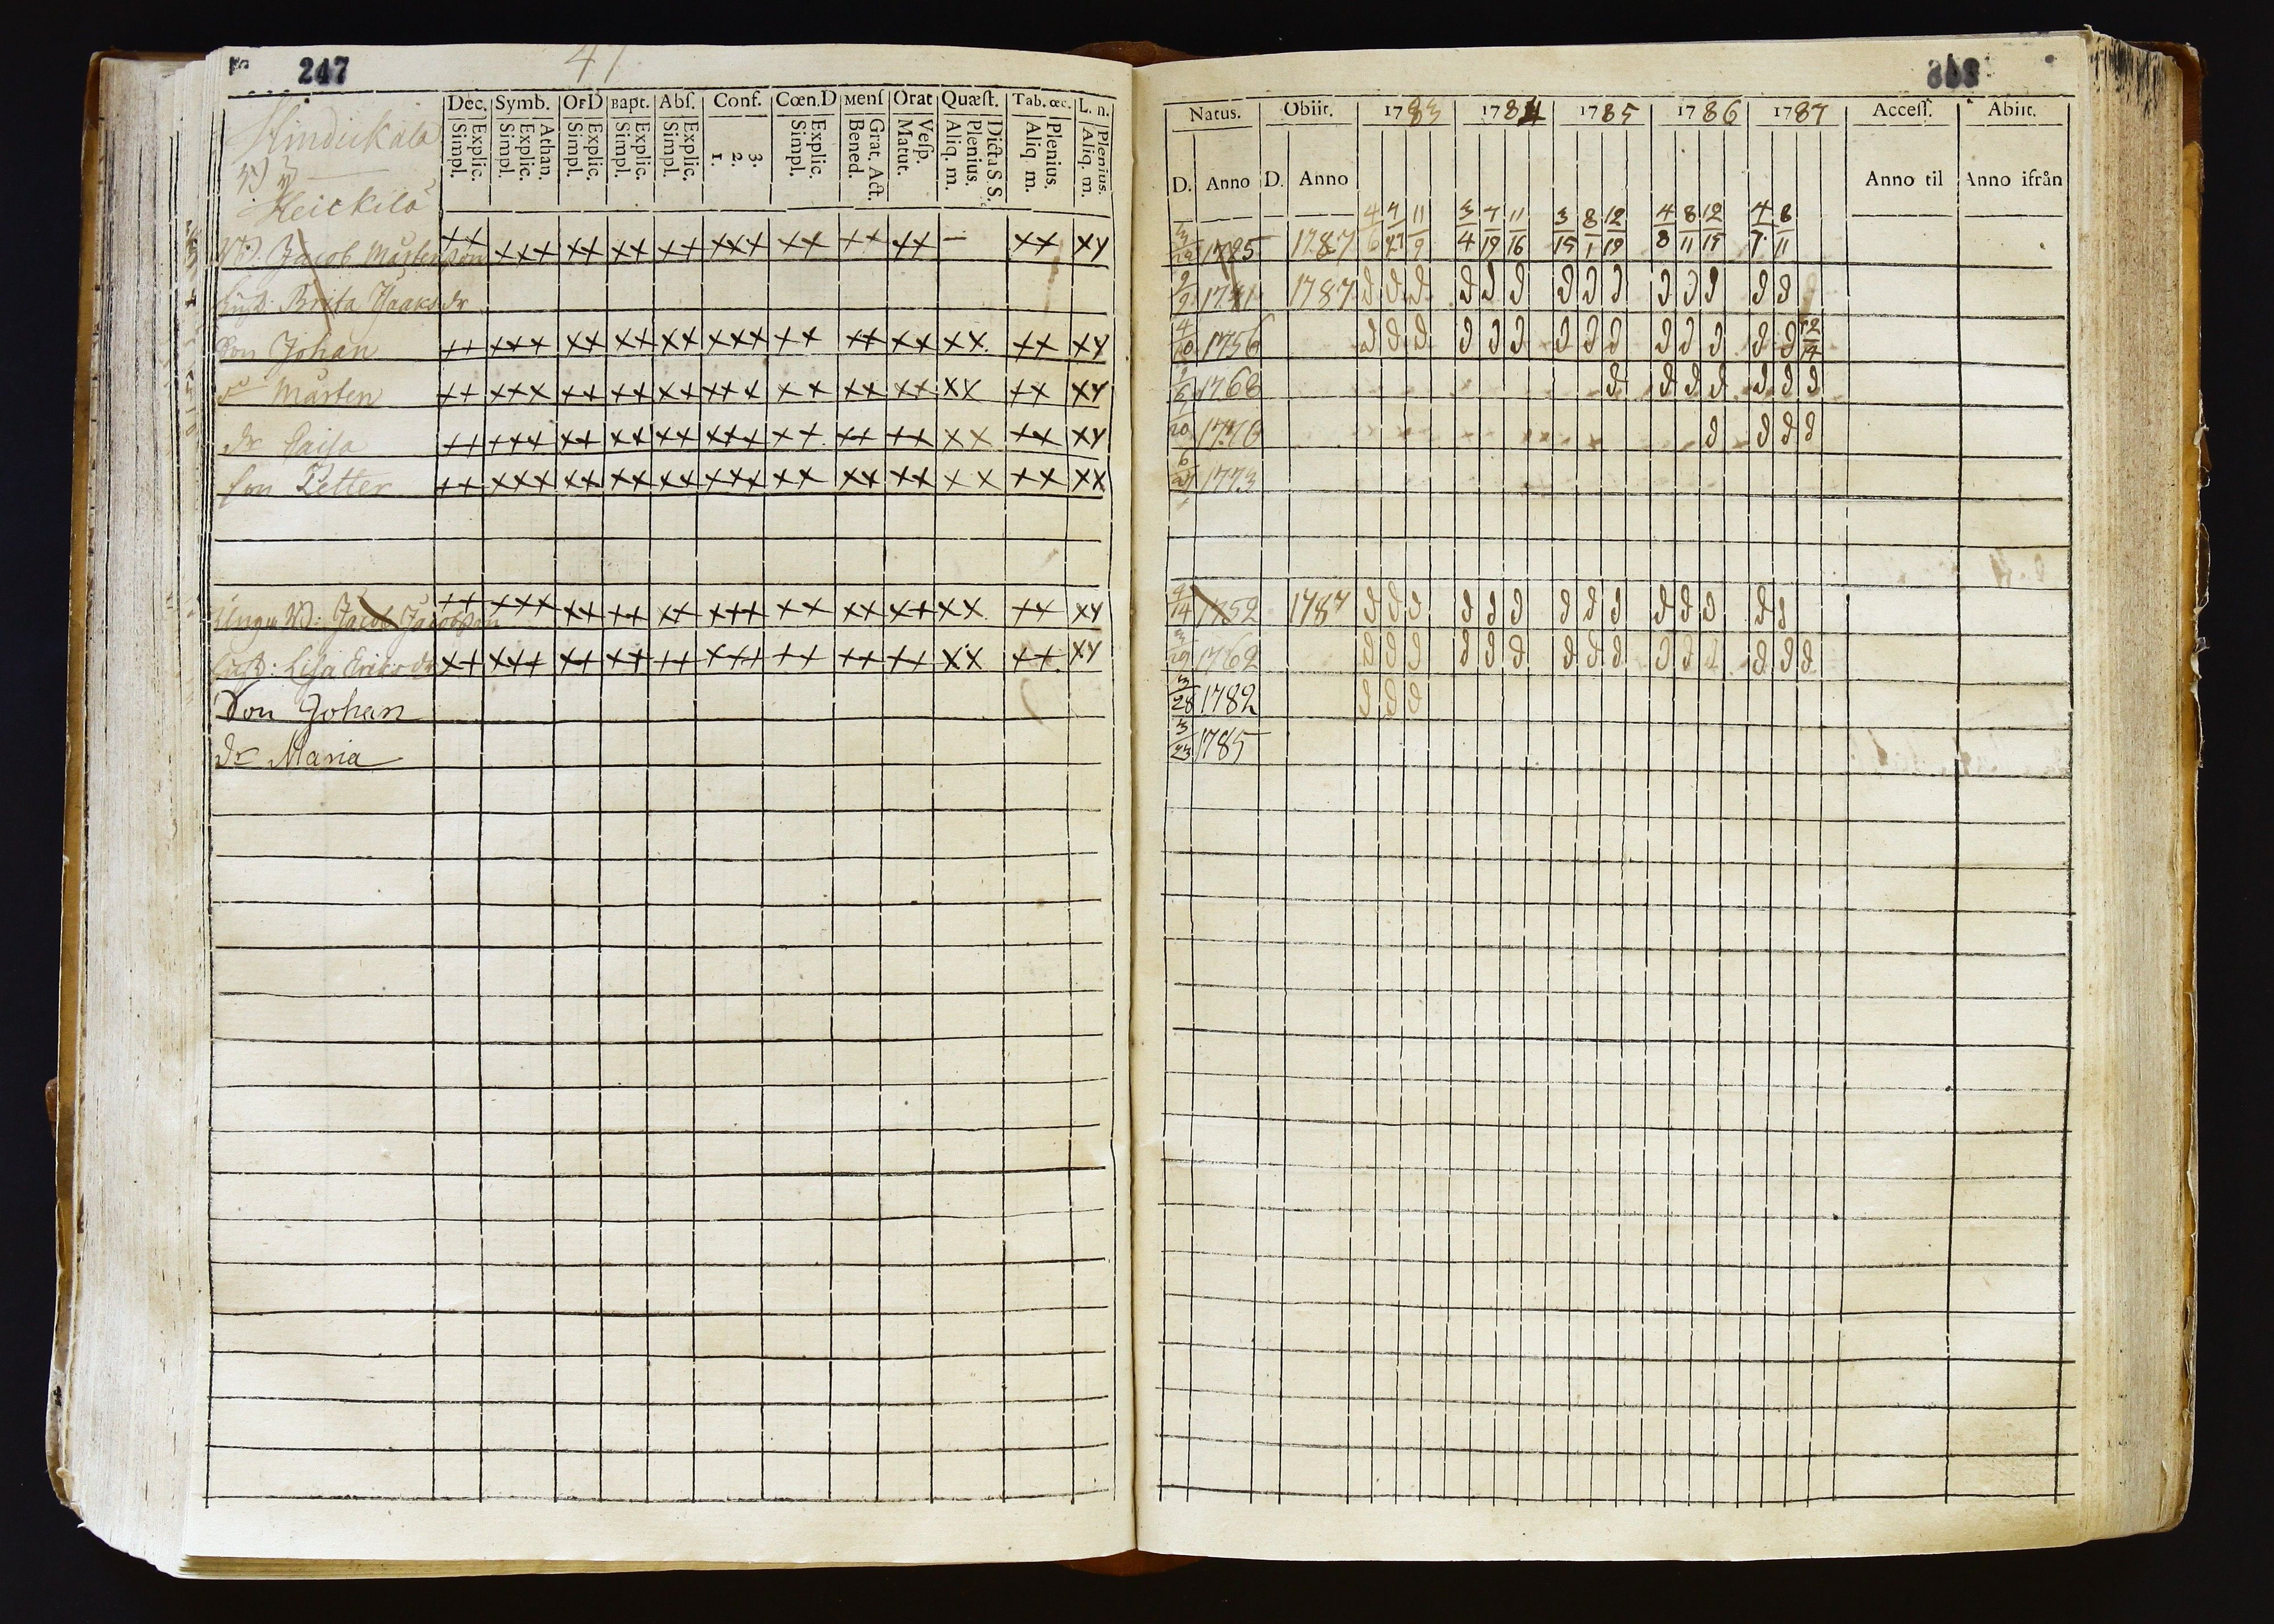 247
47
Hindickala
Heickilä
Dec. Symb. OrD Bapt. Abſ. Conf. Cœn.D Menſ Orat Quæſt. Tab. œc. L. n.
Explic. Simpl. Athan. Explic. Simpl. Explic. Simpl. Explic. Simpl. Explic. Simpl. 3. 2. 1. Explic. Simpl. Grat. Act. Bened. Veſp. Matut. Dicta S. S. Plenius. Aliq. m. Plenius. Aliq. m. Plenius. Aliq. m.
Jacob Mårtensson ++ +++ ++ ++ ++ +++ ++ ++ ++ — ++ xy
Hust: Brita Isaks dr
Son Johan ++ +++ ++ ++ ++ +++ ++ ++ ++ xx ++ xy
Mårten ++ +++ ++ ++ ++ +++ ++ ++ ++ xy ++ xy
dr Caisa ++ +++ ++ ++ ++ +++ ++ ++ ++ xx ++ xy
Son Petter ++ +++ ++ ++ ++ +++ ++ ++ ++ xx ++ xx
Unga Jacob Jacobsson ++ +++ ++ ++ ++ +++ ++ ++ ++ xx ++ xy
Hust: Lisa Ericsdr ++ +++ ++ ++ ++ +++ ++ ++ ++ xx ++ xy
Son Johan
dr Maria
Natus. Obiit. 1783 1784 1785 1786 1787 Acceſſ. Abiit.
D. Anno D. Anno Anno til Anno ifrån
4/6 7/27 11/9 3/4 7/19 11/16 3/15 8/1 12/19 4/8 8/11 12/15 4/7 8/11
1725 1787
1787 d d d d d d d d d d d d d d
4/10 1756 d d d d d d d d d d d d d d 12/14
1768 d d d d d d d
1770 d d d d
6/29 1773
4/14 1752 1787 d d d d d d d d d d d d d d
3/29 1762 d d d d d d d d d d d d d d d
3/28 1782 d d d
3/23 1785